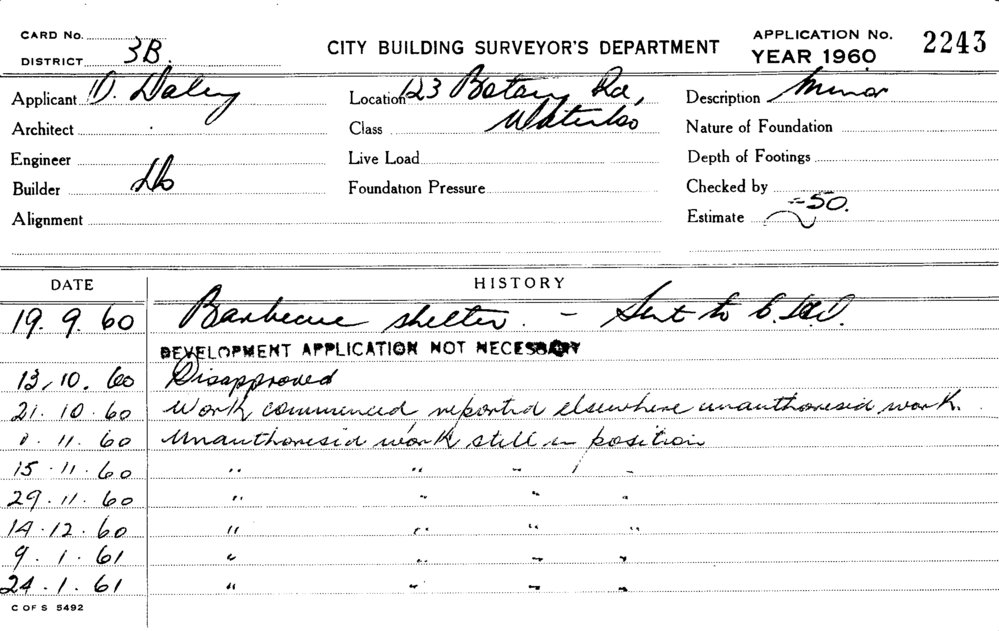 CARD No.
DISTRICT 3B.
CITY BUILDING SURVEYOR'S DEPARTMENT
APPLICATION No. 2243
YEAR 1960
Applicant D. Daley Location 123 Botany Rd, Description Minor
Architect Class Waterloo Nature of Foundation
Engineer Live Load Depth of Footings
Builder Do Foundation Pressure Checked by
Alignment Estimate -50.
DATE HISTORY
19. 9. 60 Barbecue shelter. - Sent to
DEVELOPMENT APPLICATION NOT NECESSARY
13. 10. 60 Disapproved
21. 10. 60 Work commenced reported elsewhere unauthoresid work.
11. 60 Unauthoresid work still in position
15. 11. 60 " " " "
29. 11. 60 " " " "
14. 12. 60 " " " "
9. 1. 61 " " " "
24. 1. 61 " " " "
C OF S 5492